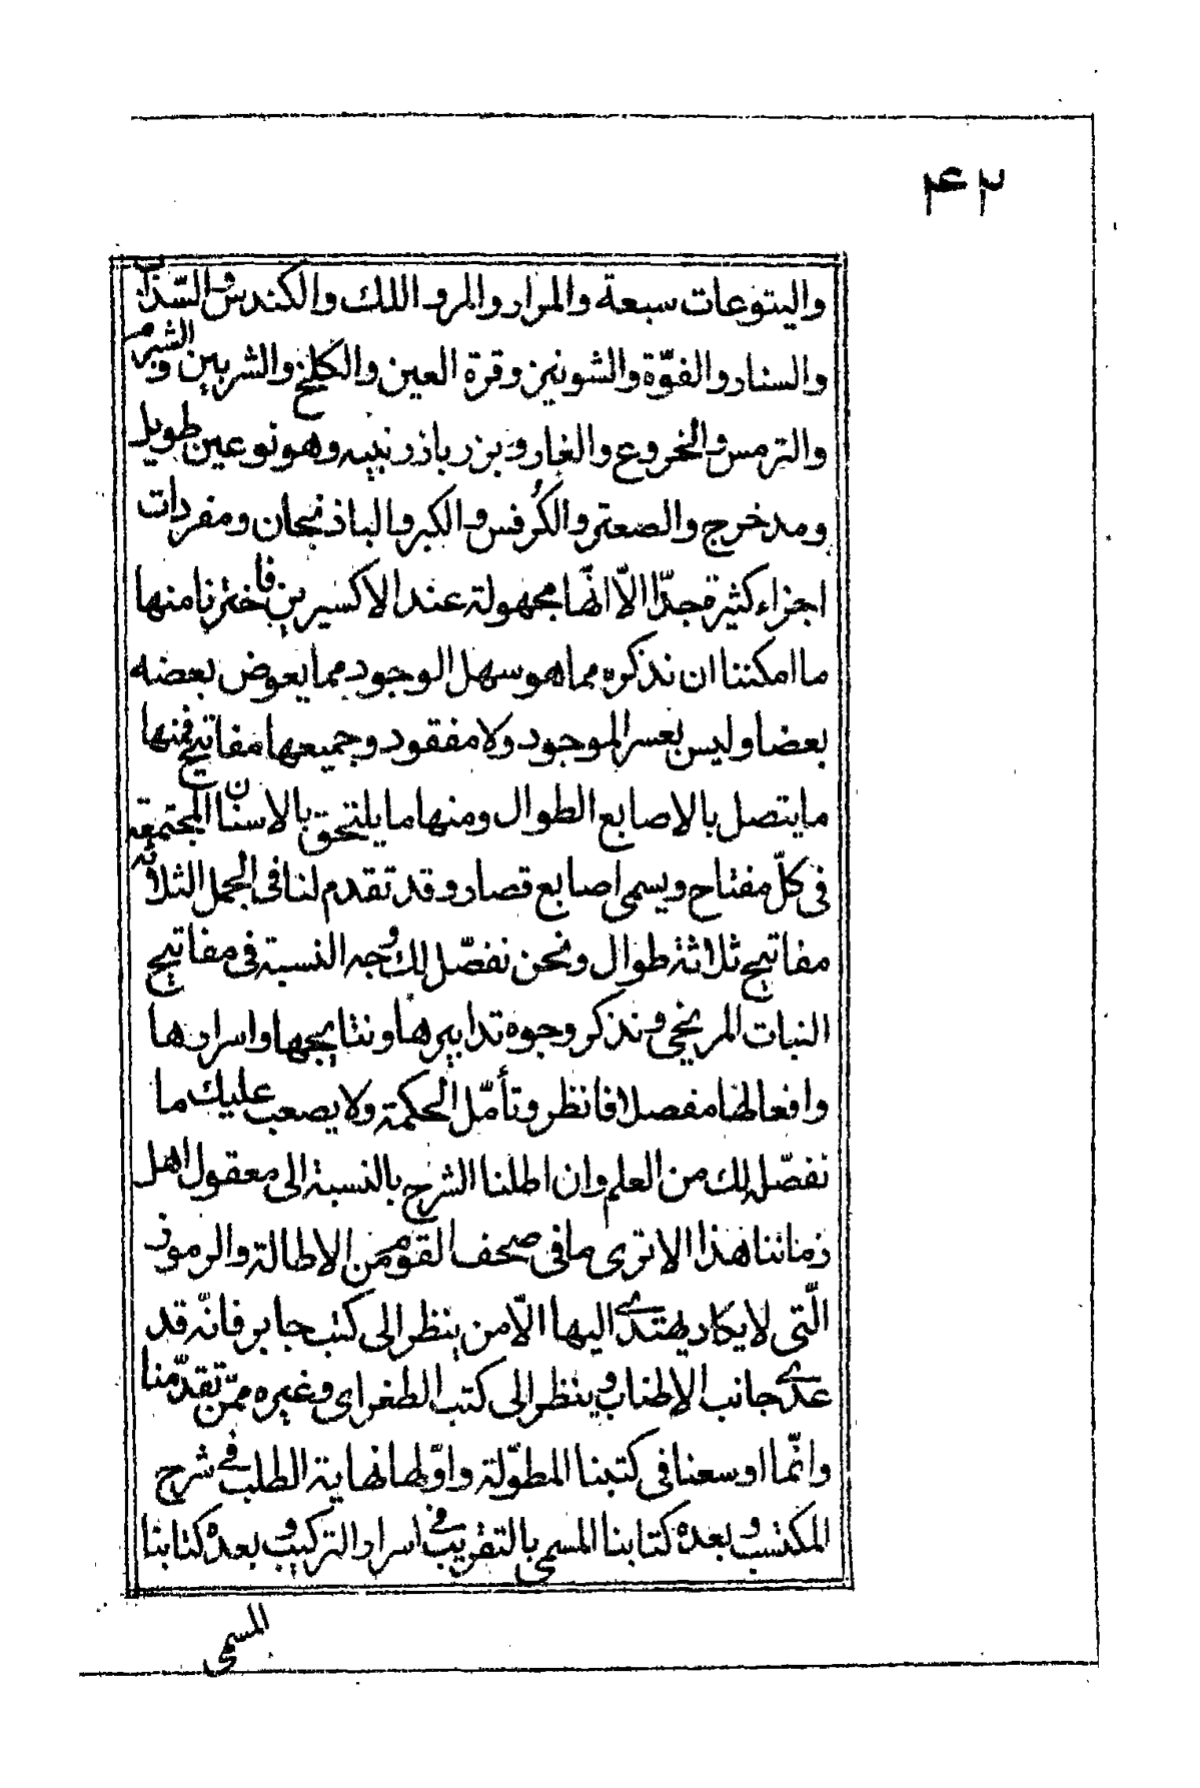 ٤٢
واليتوعات سبعة والمرار والمر واللك والكندس والسذاب
والسنار والفوّة والشونيز وقرة العين والكلخ والشربين والشبرم
والترمس والخروع والغار وبزر باذرنبيه وهو نوعين طويل
ومدخرج والصعتر والكُرفس والكبر والباذنجان ومفردات
اجزاء كثيرة جدّا الاّ انّها مجهولة عند الاكسيرين فاخترنا منها
ما امكننا ان نذكره مما هو سهل الوجود مما يعوض بعضه
بعضا وليس بعسر الموجود ولا مفقود وجميعها مفاتيح فمنها
ما يتصل بالاصابع الطوال ومنها ما يلتحق بالاسنان المجتمعة
فى كلّ مفتاح ويسمى اصابع قصار وقد تقدم لنا فى الجمل الثلاثة
مفاتيح ثلاثة طوال ونحن نفصّل لك وجه النسبة فى مفاتيح
النبات المريخى ونذكر وجوه تدابيرها ونتايجها واسرارها
وافعالها مفصلا فانظر وتأمّل الحكمة ولا يصعب عليك ما
نفصّل لك من العلم وان اطلنا الشرح بالنسبة الى معقول اهل
زماننا هذا الا ترى ما فى صحف القوم من الاطالة والرموز
الّتى لا يكاد يهتدى اليها الاّ من ينظر الى كتب جابر فانّه قد
عدى جانب الاطناب وينظر الى كتب الطغراى وغيره ممّن تقدّمنا
وانّما اوسعنا فى كتبنا المطوّلة واوّلها نهاية الطلب فى شرح
المكتسب وبعده كتابنا المسمى بالتقريب فى اسرار التركيب وبعده كتابنا
المسمى